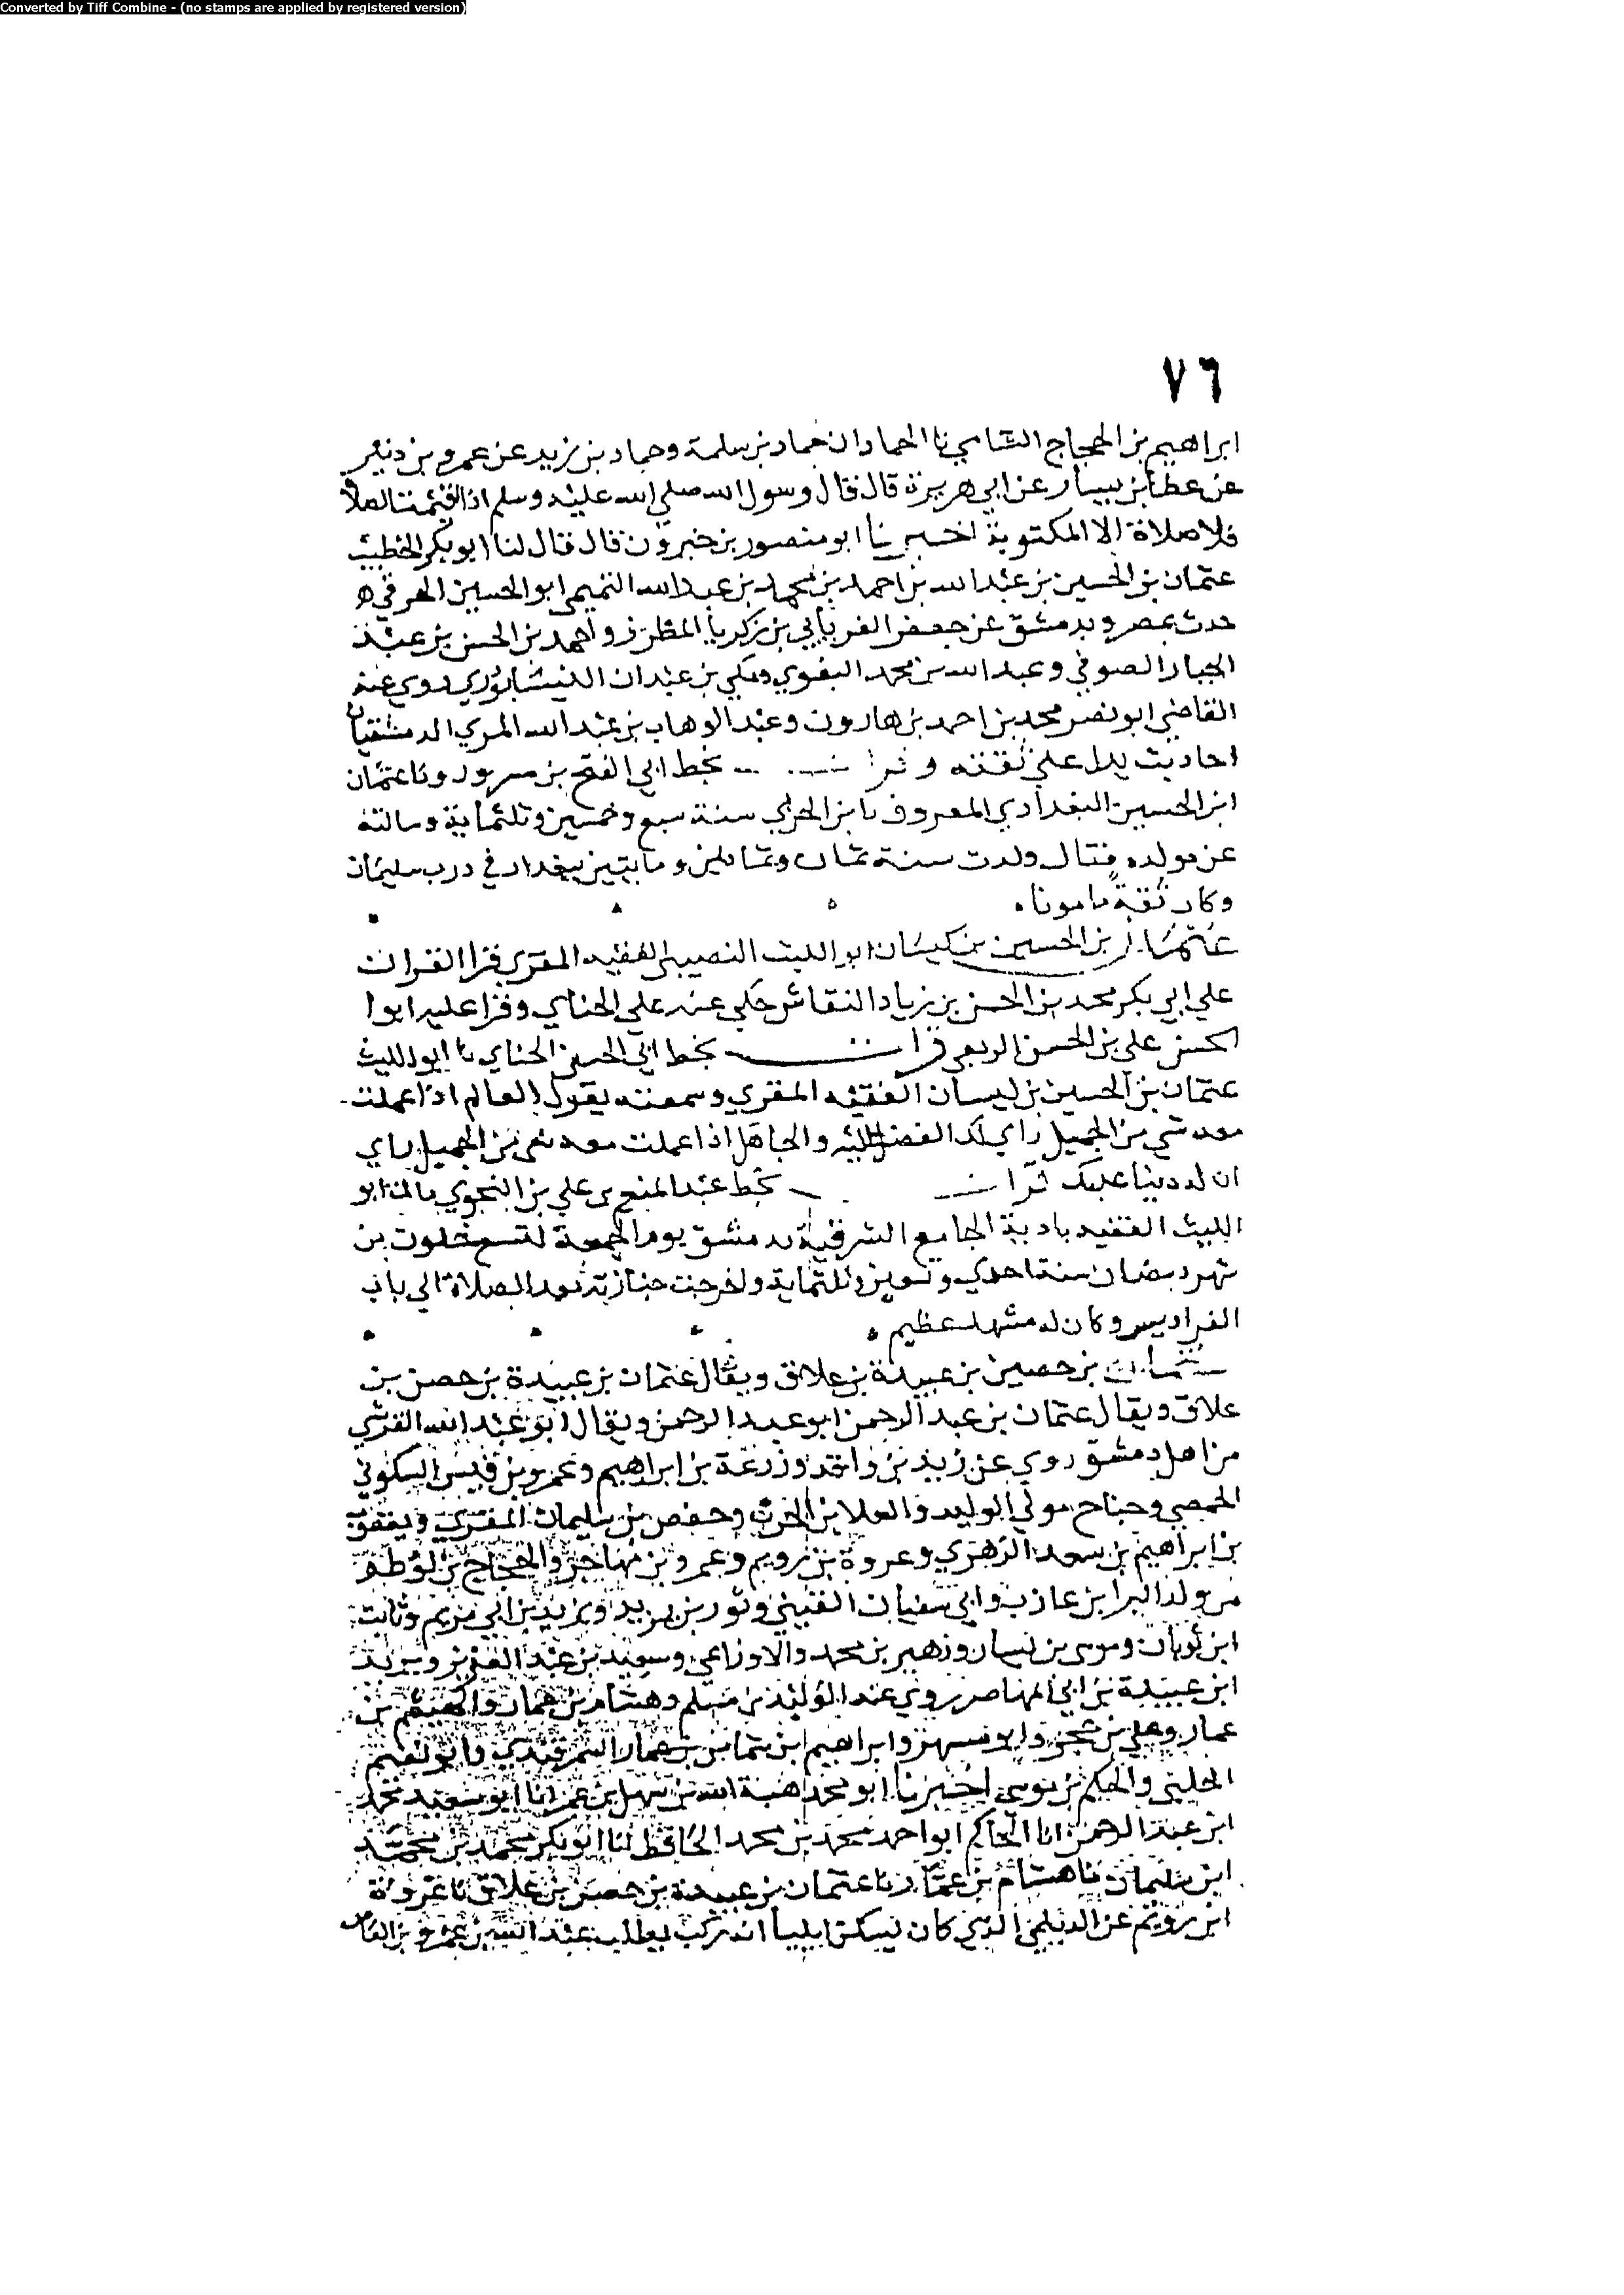 Converted by Tiff Combine - (no stamps are applied by registered version)
٧٦
ابراهيم بن الحجاج الشامي نا الحمادان حماد بن سلمة وحماد بن زيد عن عمرو بن دينر
عن عطا بن يسار عن ابي هريرة قال قال رسول الله صلى الله عليه وسلم اذا اقيمت الصلاة
فلا صلاة الا المكتوبة اخبرنا ابو منصور بن خيرون قال قال لنا ابو بكر الخطيب
عثمان بن الحسين بن عبد الله بن احمد بن محمد بن عبد الله التميمي ابو الحسين الخرقي
حدث بمصر وبدمشق عن جعفر الفريابي بن زكريا المطرز واحمد بن الحسن بن عبد
الجبار الصوفي وعبد الله بن محمد البغوي ومكي بن عبدان النيشابوري روى عنه
القاضي ابو نصر محمد بن احمد بن هارون وعبد الوهاب بن عبد الله المري الدمشقيان
احاديث يدل على ثقته وقرات بخط ابي الفتح بن مسرور ونا عثمان
ابن الحسين البغدادي المعروف بابن الخرقي سنة سبع وخمسين وثلثماية وسالته
عن مولده فقال ولدت سنة ثمان وثمانين ومايتين ببغداد في درب سليمان
وكان ثقة مامونا
عثمان بن الحسين بن كيسان ابو الليث النصيبي الفقيه المقري قرا القران
علي ابي بكر محمد بن الحسن بن زياد النقاش حكى عنه علي الحناي وقرا عليه ابوا
الحسن علي بن الحسن الربعي قرات بخط ابي الحسن الحناي نا ابو الليث
عثمان بن الحسين بن ليسان الفقيه المقري وسمعته يقول العالم اذا عملت
معه شي من الجميل راي لك الفضل عليه والجاهل اذا عملت معه شي من الجميل راي
ان له دينا عليك قرات بخط عبد المنعم بن علي بن النحوي مات ابو
الليث الفقيه بادية الجامع الشرقية بدمشق يوم الجمعة لتسع خلون من
شهر رمضان سنة احدي وتسعين وثلثماية واخرجت جنازته بعد الصلاة الى باب
الفراديس وكان له مشهد عظيم
عثمان بن حصين بن عبيدة بن علاق ويقال عثمان بن عبيدة بن حصن بن
علاق ويقال عثمان بن عبد الرحمن ابو عبد الرحمن ويقال ابو عبد الله القرشي
من اهل دمشق روي عن زيد بن واقد وزرعة بن ابراهيم وعمرو بن قيس السكوني
الحمصي وجناح مولي الوليد والعلا بن الحرث وحفص بن سليمان المقري ويعقوب
بن ابراهيم بن سعد الزهري وعروة بن رويم وعمرو بن مهاجر والحجاج بن
من ولد البرا بن عازب وابي سفيان القيني وثور بن يزيد ويزيد بن ابي مريم وثابت
ابن ثوبان وموسى بن يسار وزهير بن محمد والاوزاعي وسعيد بن عبد العزيز ويزيد
ابن عبيدة بن ابي المهاصر روي عنه الوليد بن مسلم وهشام بن عمار والهيثم بن
عمار وعلي بن حجر وابو مسهر وابراهيم ابن شماس بن عمار السمرقندي وابو نعيم
الحلبي والحكم بن موسى اخبرنا ابو محمد هبة الله بن سهل بن عمر انا ابو سعيد محمد
ابن عبد الرحمن انا الحاكم ابو احمد محمد بن محمد الحافظ انا ابو بكر محمد بن محمد
ابن سليمان نا هشام بن عمار نا عثمان بن عبيدة بن حصن بن علاق نا عروة
ابن رويم عن الديلمي الذي كان يسكن ايليا انه ركب يطلب عبد الله بن عمرو بن العاص